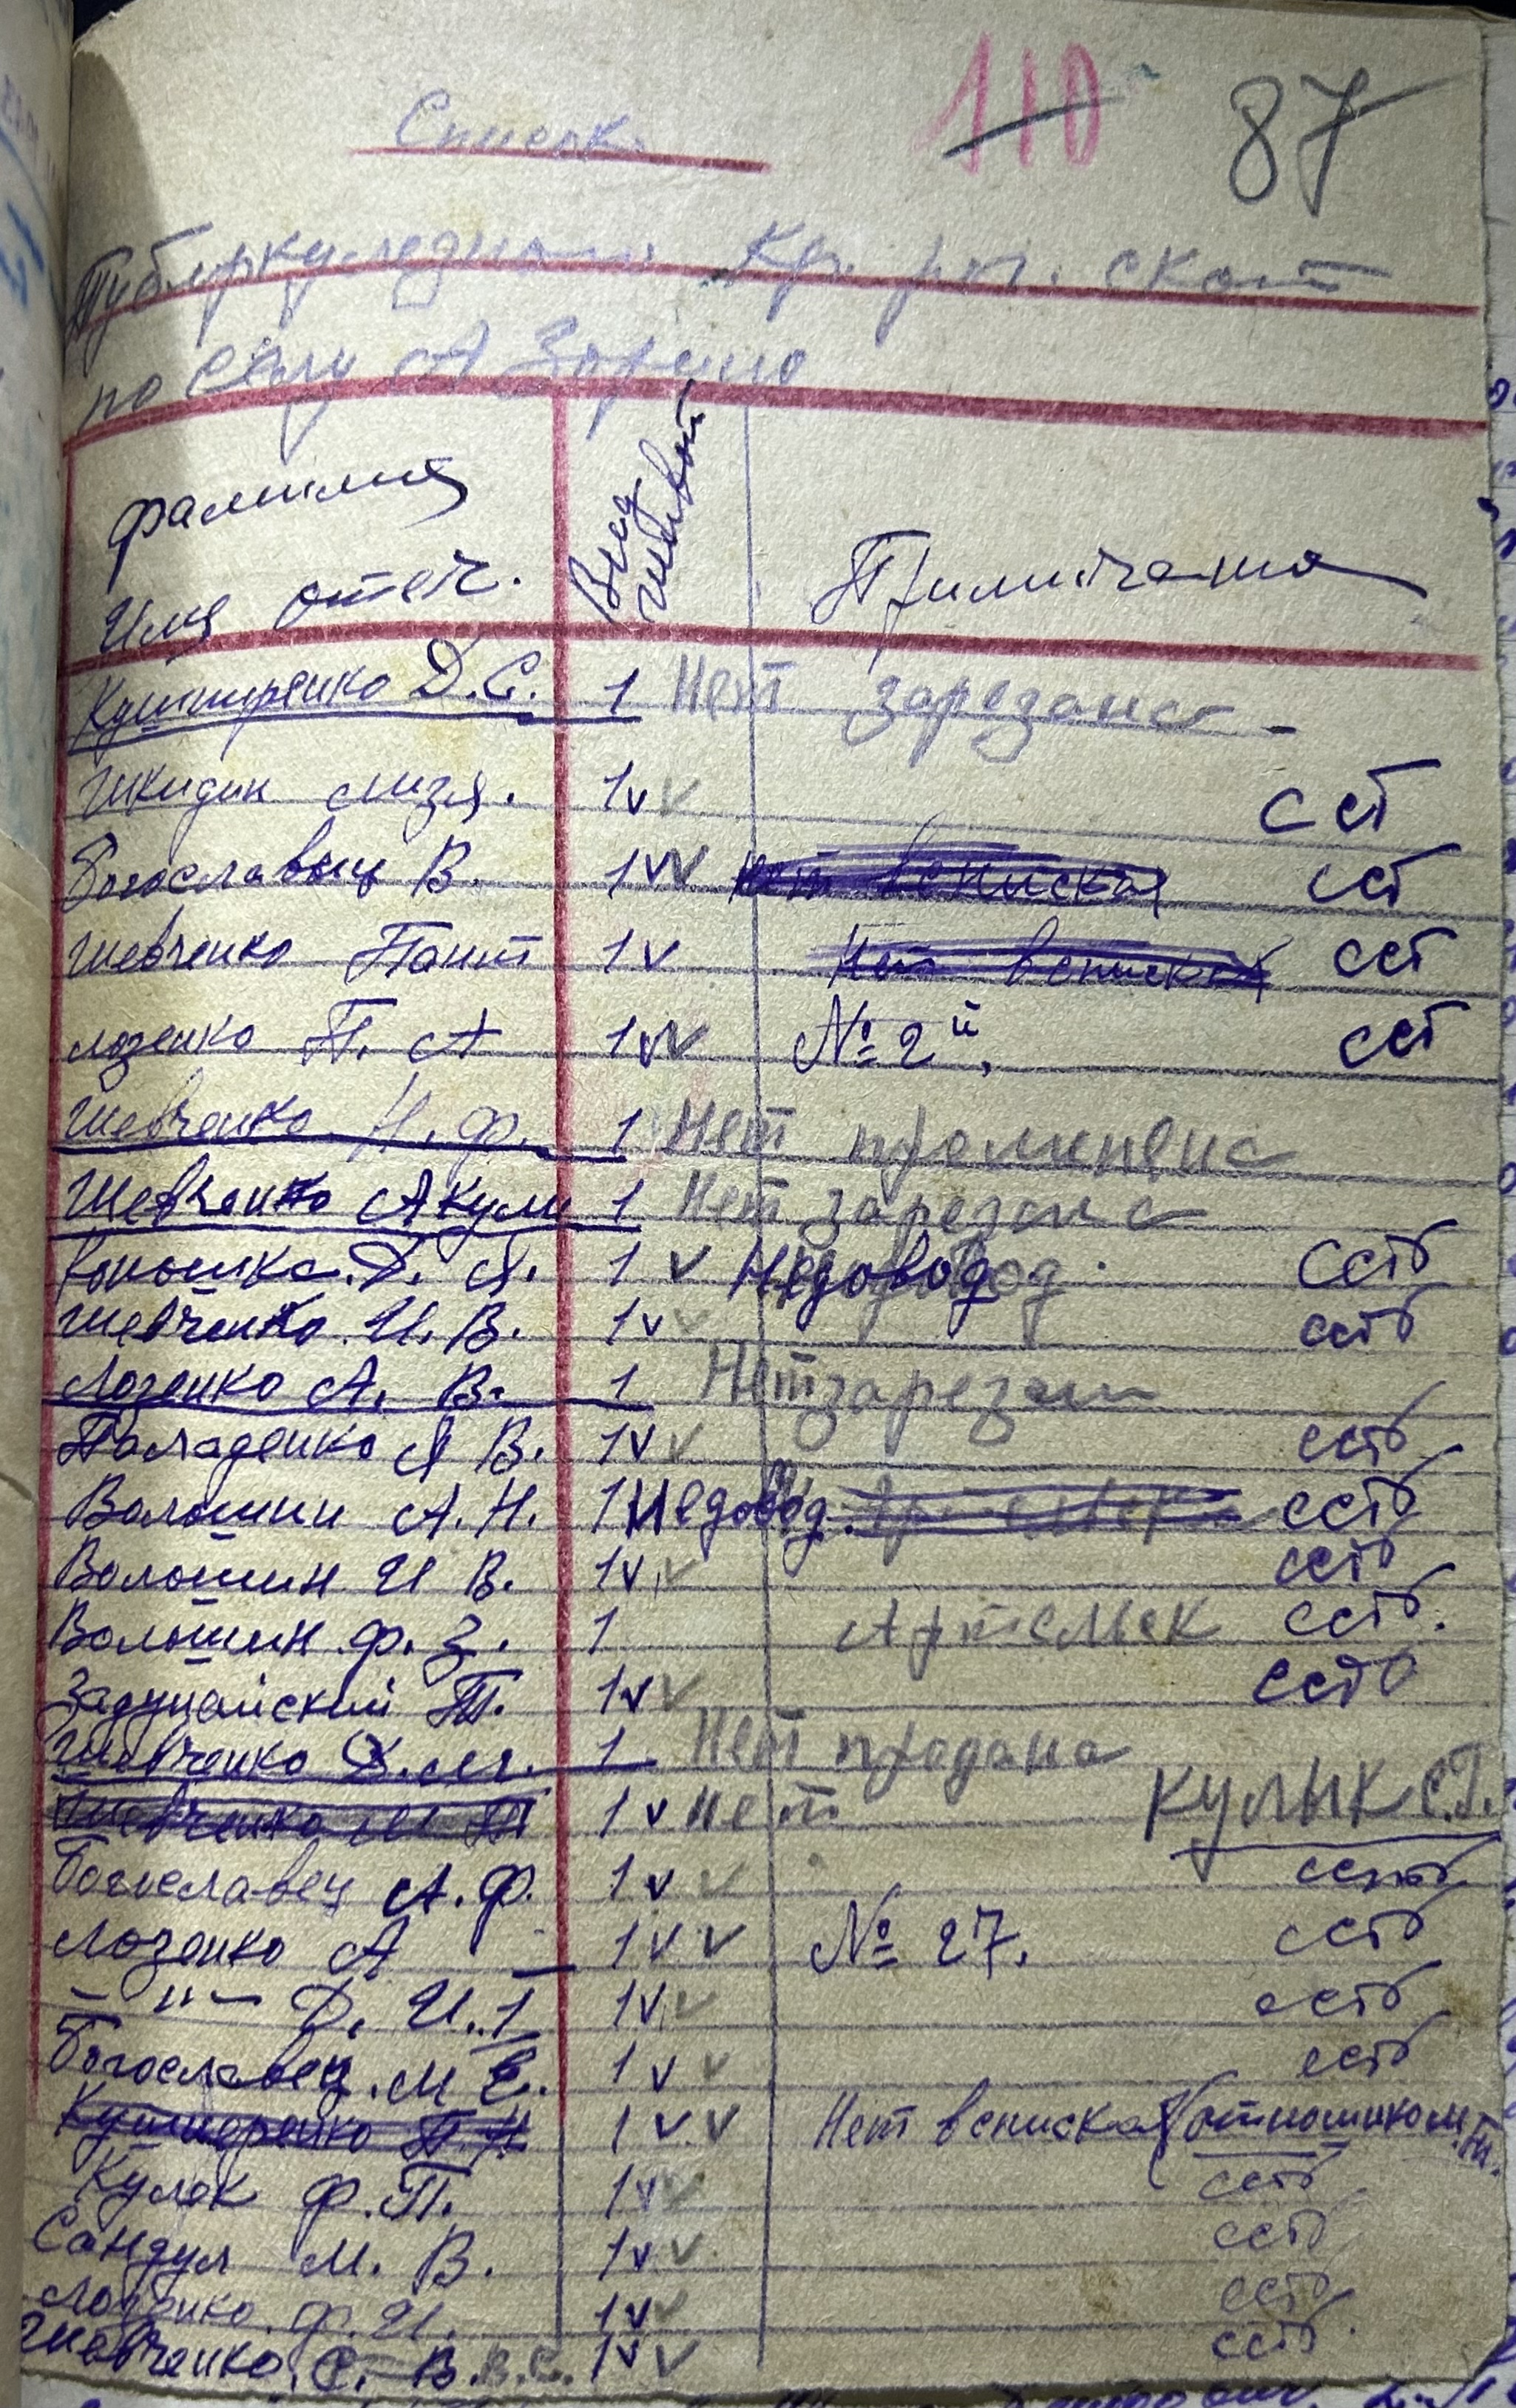 110 87
Список
Туберкулезного Кр. рог. скот
по селу А Зорино
фамилия
Имя отеч.
Вид животн
Примичание
Кушниренко Д.С. 1 Нет зарезана
Шкидин 1vv ест
Богославец В. 1vv нет всписках ест
Шевченко Пант 1v Нет всписках ест
Лозенко П. А 1vv № 2й, ест
Шевченко Н. ф. 1 Нет
Шевченко Акули 1 Нет зарезана
Коношко Д. Я. 1 v Недовод естб
Шевченко И. В. 1vv естб
Лозенко А. В. 1 Нет зарезан
Паладенко Я В. 1vv естб
Волошин А. Н. 1 Недовод. естб
Волошин И В. 1vv естб
Волошин ф. З. 1 Артелнек естб.
Задунайский П. 1vv естб
Шевченко Д.м. 1 Нет продана
Шевченко 1 v нет Кулик С.Т.
Богославец А. ф. 1 v v естб
Лозенко А 1 v v № 27. естб
– " – Д. И. 1 1vv естб
Богославец. М Е. 1 v v естб
Кушнеренко П. Н 1 v v Нет всписках
Кулек ф. П. 1vv естб
Сандул М. В. 1vv естб
Лозенко. ф. И. 1vv естб
Шевченко. С. В. В.С. 1vv естб